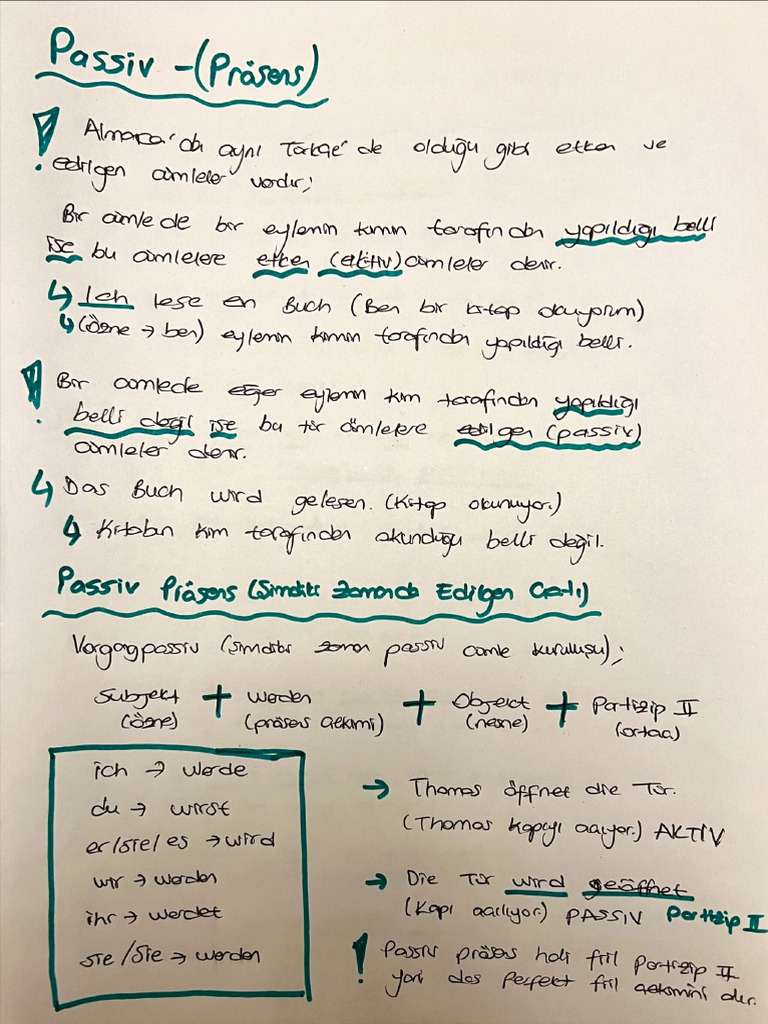 Passiv - (Präsens)
! Almanca'da aynı Türkçe'de olduğu gibi etken ve
edilgen cümleler vardır;
Bir cümlede bir eylemin kimin tarafından yapıldığı belli
ise bu cümlelere etken (aktiv) cümleler denir.
↳ Ich lese ein Buch (Ben bir kitap okuyorum)
↳ (özne → ben) eylemin kimin tarafından yapıldığı belli.
! Bir cümlede eğer eylemin kim tarafından yapıldığı
belli değil ise bu tür cümlelere edilgen (passiv)
cümleler denir.
↳ Das Buch wird gelesen. (Kitap okunuyor.)
↳ Kitabın kim tarafından okunduğu belli değil.
Passiv Präsens (Şimdiki Zamanda Edilgen Çatı)
Vorgangpassiv (Şimdiki zaman passiv cümle kuruluşu);
Subjekt + Werden + Objekt + Partizip II
(özne) (präsens çekimi) (nesne) (ortaç)
ich → werde
du → wirst
er/sie/es → wird
wir → werden
ihr → werdet
sie/Sie → werden
→ Thomas öffnet die Tür.
(Thomas kapıyı açıyor.) AKTİV
→ Die Tür wird geöffnet
(Kapı açılıyor.) PASSİV Partizip II
! Passiv präses hali fiil Partizip II
yani das Perfekt fiil çekimini alır.